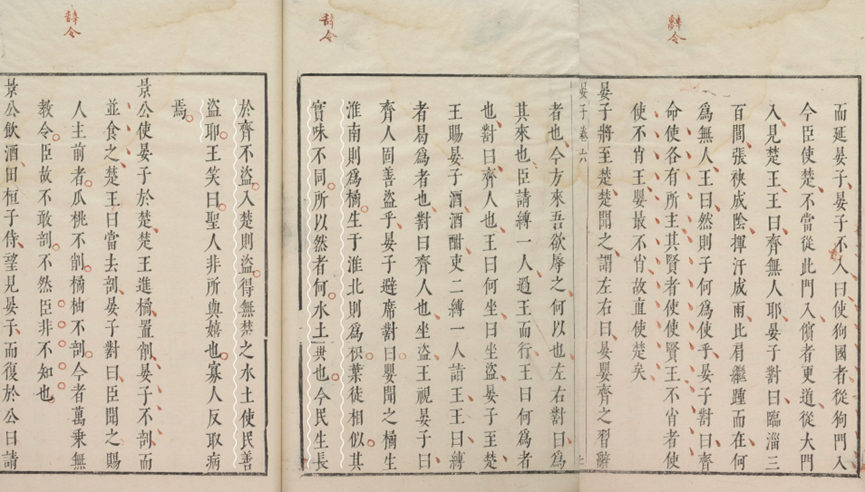 辭令
而延晏子晏子不入曰使狗國者從狗門入
今臣使楚不當從此門入儐者更道從大門
入見楚王王曰齊無人耶晏子對曰臨淄三
百閭張袂成陰揮汗成雨比肩繼踵而在何
爲無人王曰然則子何爲使乎晏子對曰齊
命使各有所主其賢者使使賢王不肖者使
使不肖王嬰最不肖故直使楚矣
晏子將至楚楚聞之謂左右曰晏嬰齊之習辭
晏子卷六
七
辭令
者也今方來吾欲辱之何以也左右對曰爲
其來也臣請縛一人過王而行王曰何爲者
也對曰齊人也王曰何坐曰坐盜晏子至楚
王賜晏子酒酒酣吏二縛一人詣王王曰縛
者曷爲者也對曰齊人也坐盜王視晏子曰
齊人固善盜乎晏子避席對曰嬰聞之橘生
淮南則爲橘生于淮北則爲枳葉徒相似其
實味不同所以然者何水土異也今民生長
於齊不盜入楚則盜得無楚之水土使民善
盜耶王笑曰聖人非所與嬉也寡人反取病
焉
辭令
景公使晏子於楚楚王進橘置削晏子不剖而
並食之楚王曰當去剖晏子對曰臣聞之賜
人主前者瓜桃不削橘柚不剖今者萬乘無
教令臣故不敢剖不然臣非不知也
景公飲酒田桓子侍望見晏子而復於公曰請